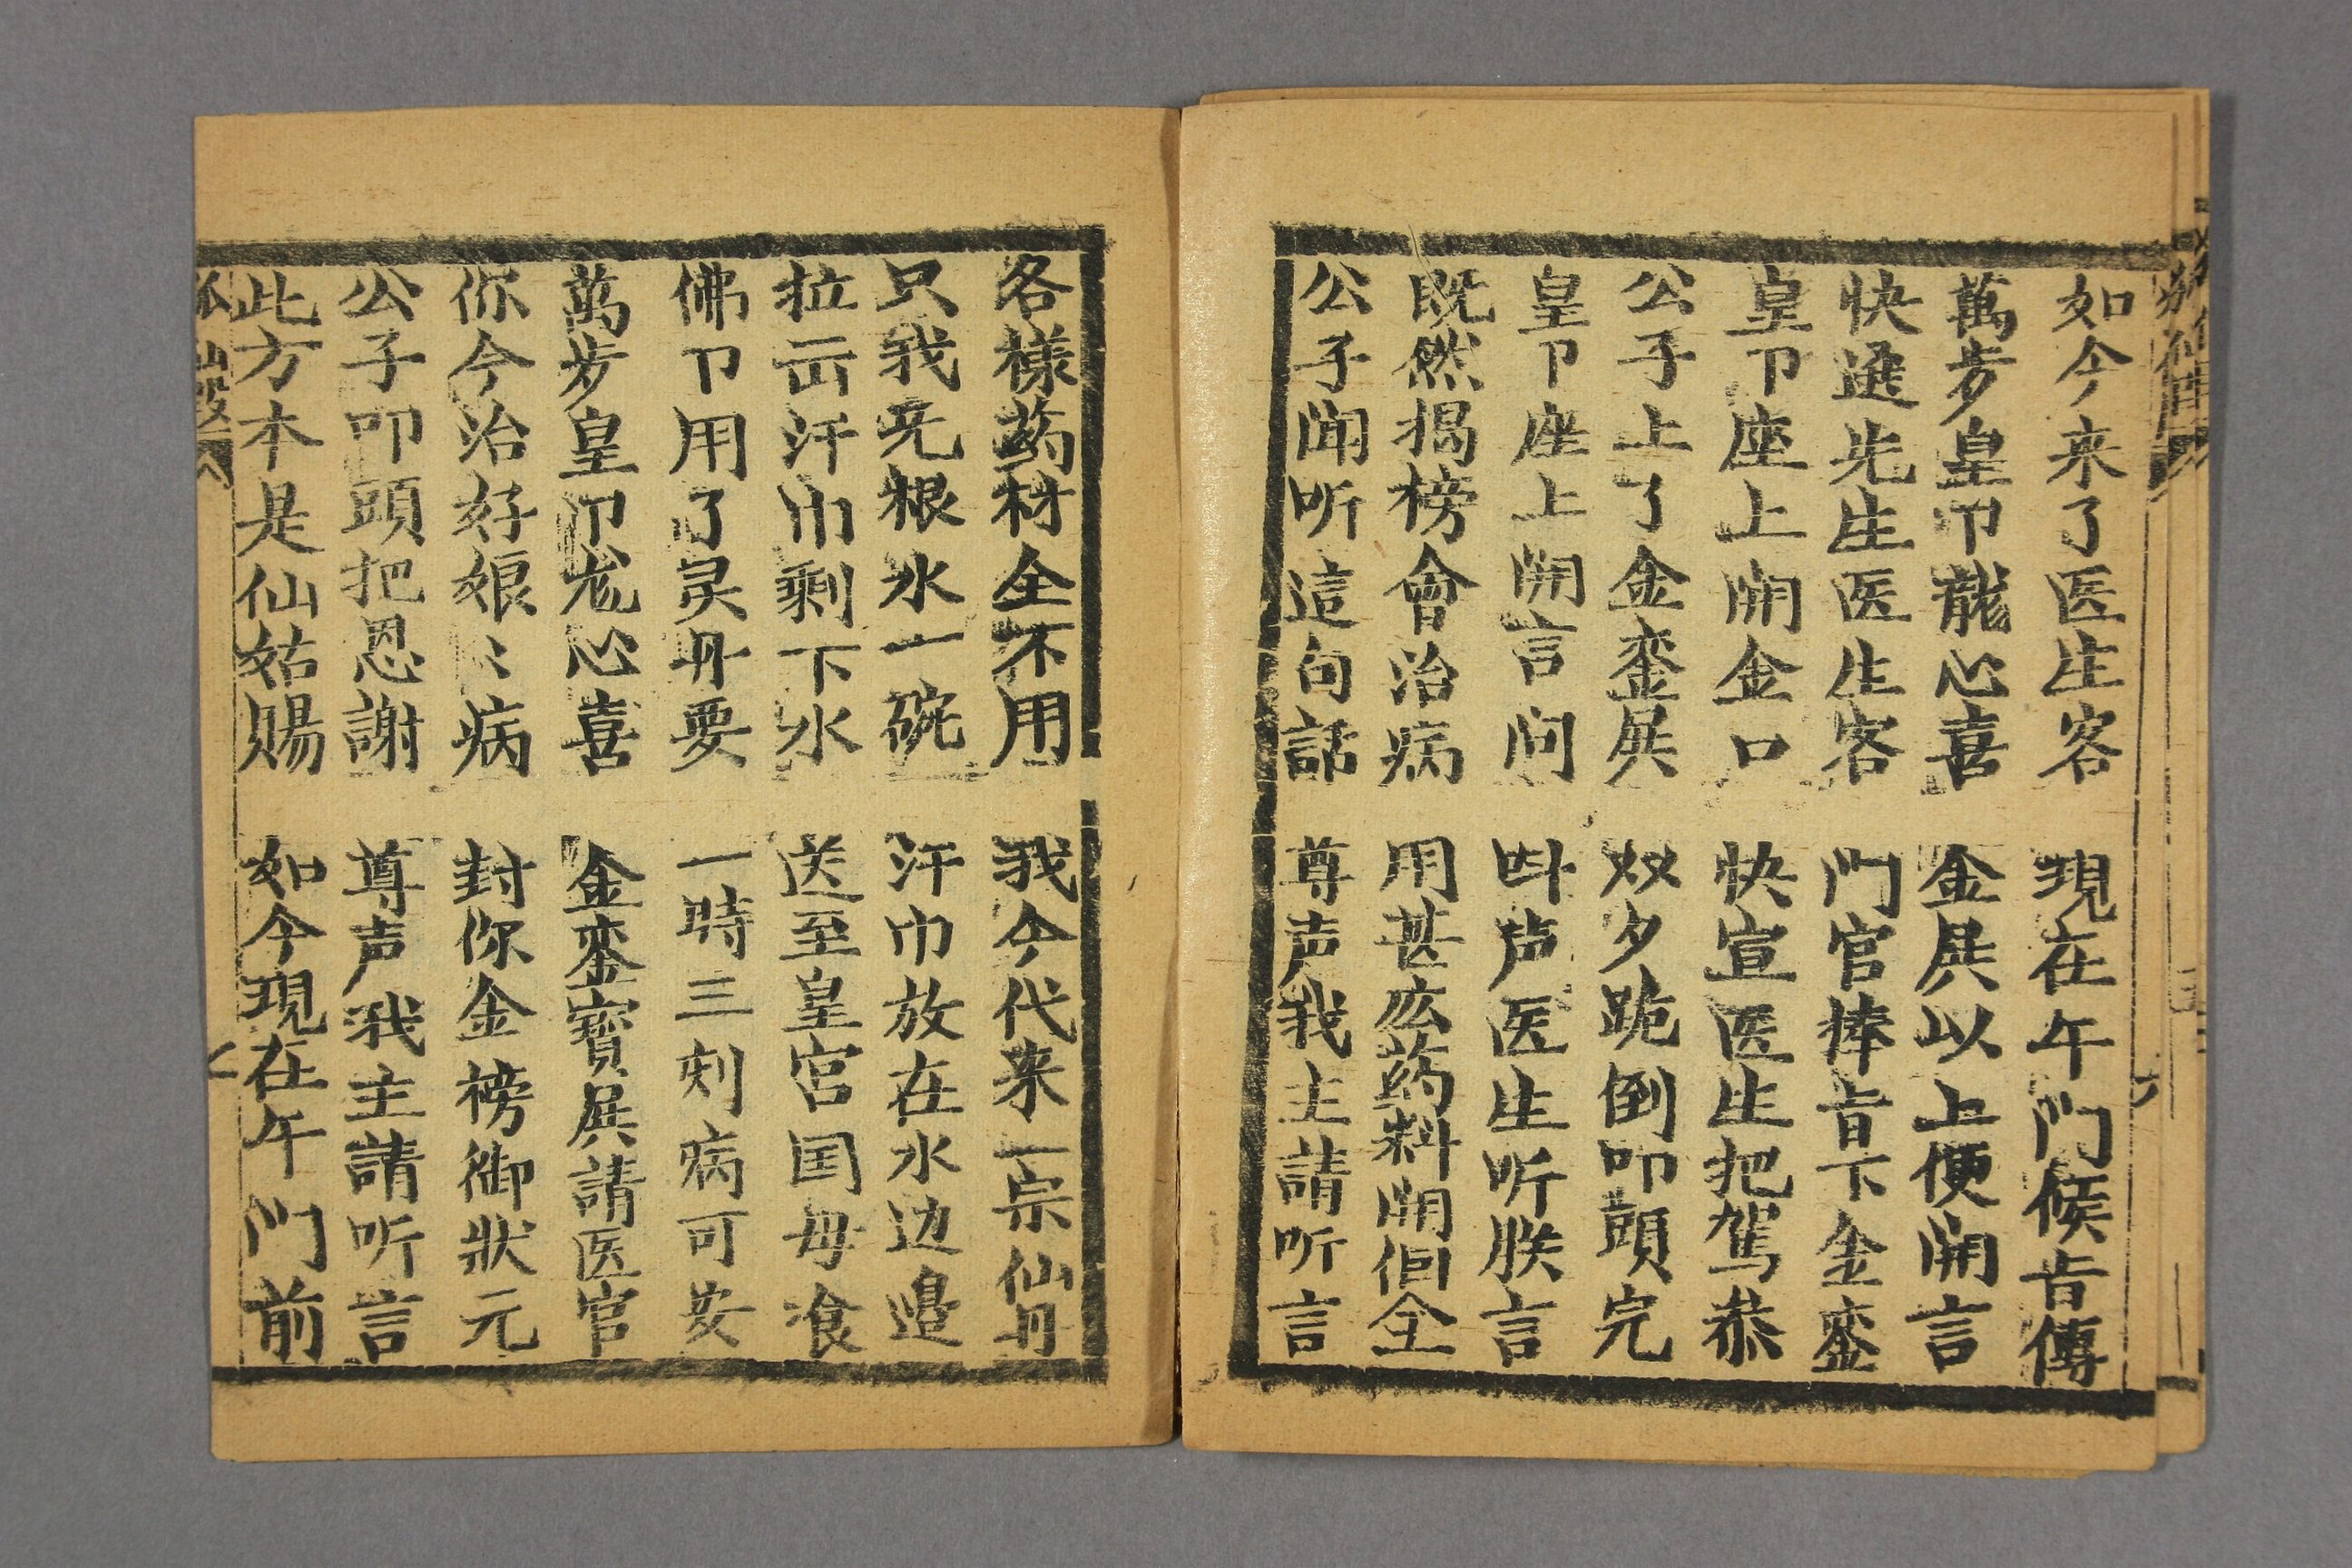 如今来了医生客 現在午门候旨傳
萬岁皇卩龍心喜 金𡱈以上便開言
快選先生医生客 门官捧旨下金銮
皇卩座上開金口 快宣医生把駕恭
公子上了金銮𡱈 双夕跪倒叩頭完
皇卩座上開言问 叫声医生听朕言
既然揭榜會治病 用甚庅药料開個全
公子闻听這句話 尊声我主請听言
各様药材全不用 我今代来一宗仙丹
只我旡根水一碗 汗巾放在水边邉
拉出汗巾剩下水 送至皇宫国母飡
佛卩用了灵丹要 一時三刻病可安
萬岁皇卩龙心喜 金銮寳𡱈請医官
你今治好娘〻病 封你金榜御狀元
公子叩頭把恩謝 尊声我主請听言
此方本是仙姑賜 如今現在午门前